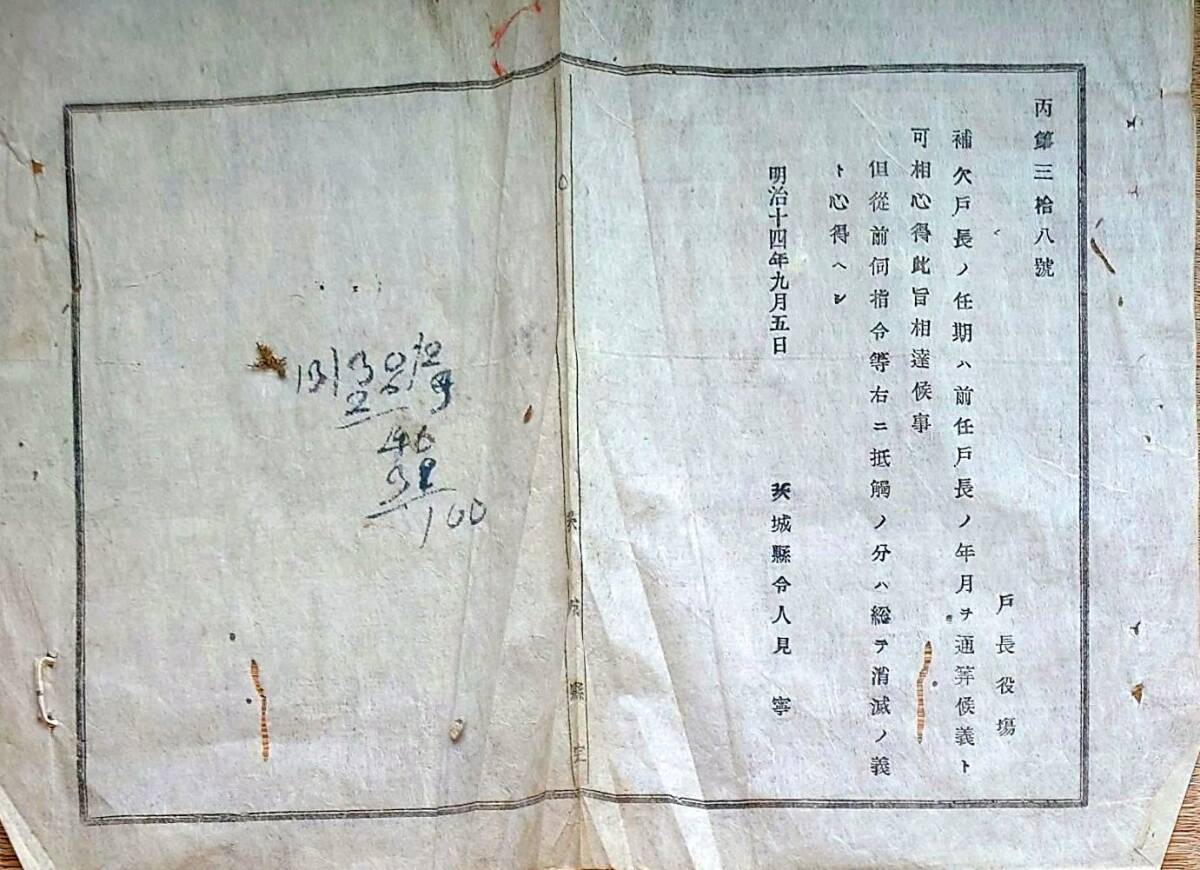 丙第三拾八號
戸長役場
補欠戸長ノ任期ハ前任戸長ノ年月ヲ通算候義ト
可相心得此旨相達候事
但從前伺指令等右ニ抵觸ノ分ハ総テ消滅ノ義
ト心得ヘシ
明治十四年九月五日
茨城縣令人見寧
茨城縣
46
100